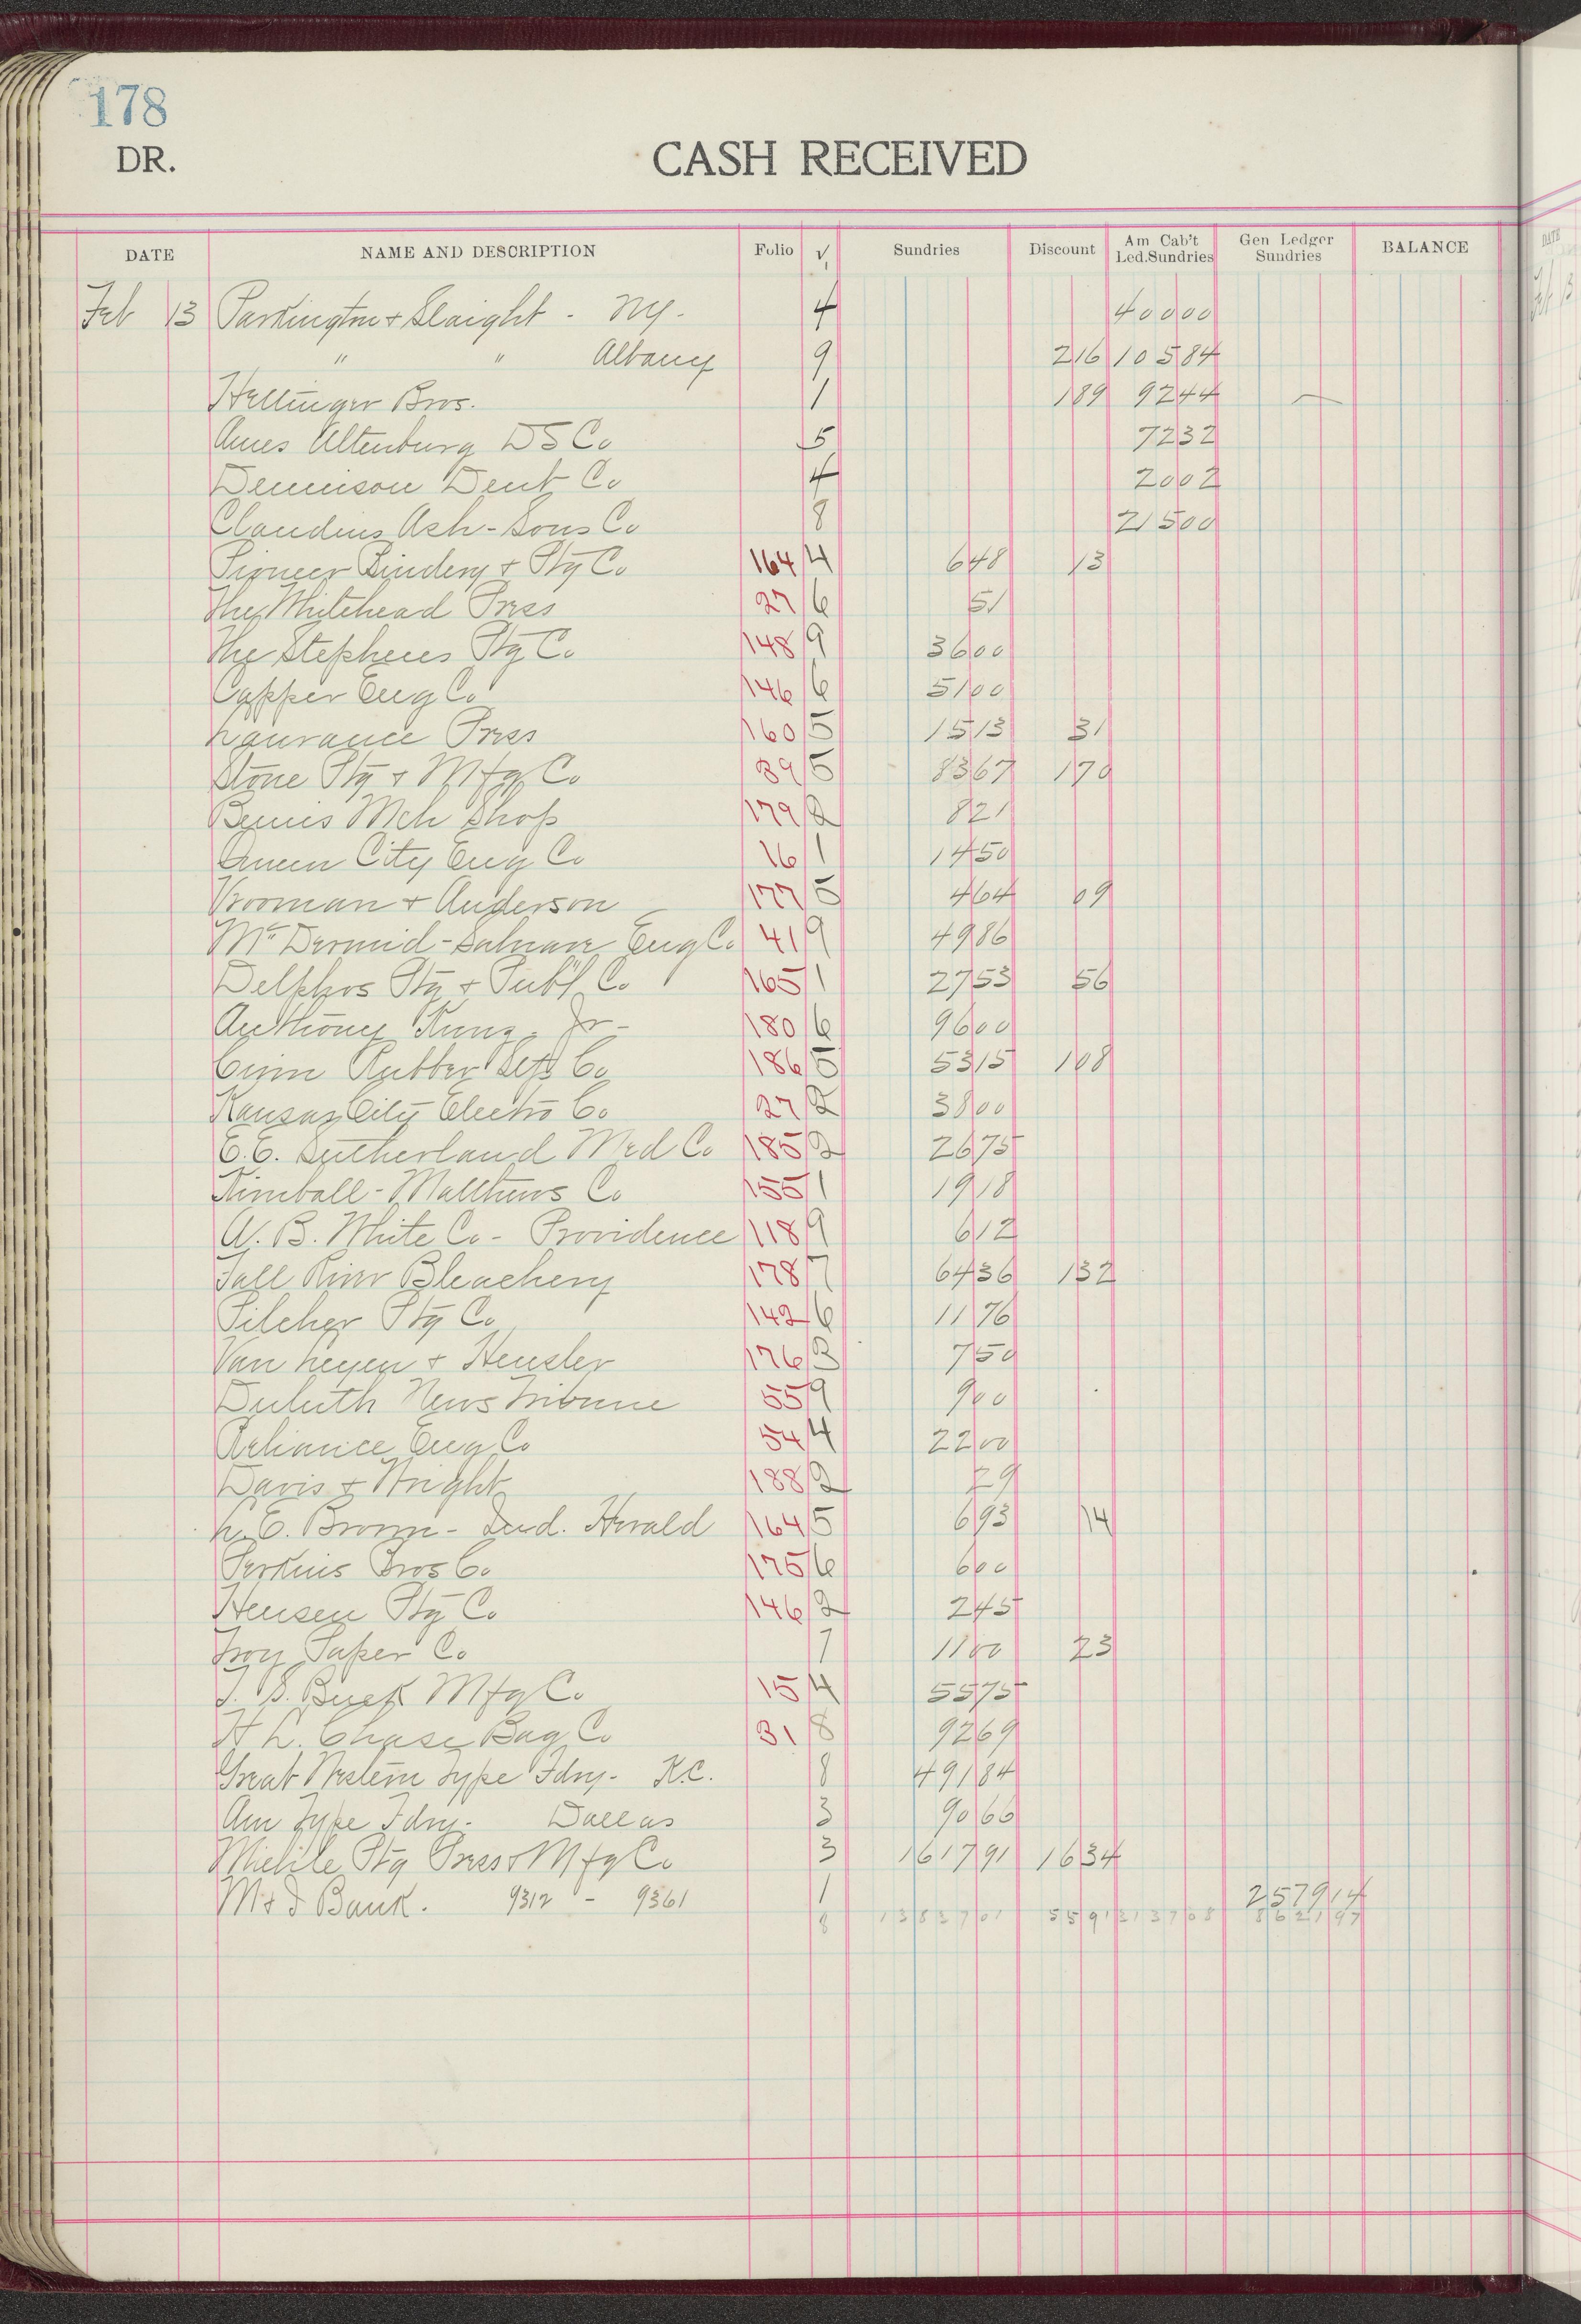 178
DR.
CASH RECEIVED
DATE NAME AND DESCRIPTION Folio √ Sundries Discount Am Cab't Led.Sundries Gen Ledger Sundries BALANCE
Feb 13 Parkington & Slaight - NY. 4 40000
" " Albany 9 216 10584
Hellinger Bros. 1 189 9244
Ames Altenburg DS Co 5 7232
Dennison Dent Co 4 2002
Claudius Ash-Sons Co 8 21500
Pioneer Bindery & Ptg Co 164 4 648 13
The Whitehead Press 27 6 51
The Stephens Ptg Co 148 9 3600
Capper Eng Co 146 6 5100
Laurance Press 160 5 1513 31
Stone Ptg & Mfg Co 39 5 8367 170
Bemis Mch Shop 179 2 821
Queen City Eng Co 16 1 1450
Vrooman & Anderson 177 5 464 09
McDermid- Eng Co 41 9 4986
Delphos Ptg & Publ Co 165 1 2753 56
Anthony Kunz. Jr- 180 6 9600
Cinn Rubber Co 186 5 5315 108
Kansas City Electro Co 27 2 3800
E.E. Sutherland Med Co 185 2 2675
Kimball-Matthews Co 155 1 1918
W. B. White Co- Providence 118 9 612
Fall River Bleachery 178 7 6436 132
Pilcher Ptg Co 142 6 1176
Van Leyen & Hensler 176 3 750
Duluth News Tribune 55 9 900
Reliance Eng Co 54 4 2200
Davis & Wright 188 2 29
L. E. Brown- Ind. Herald 164 5 693 14
Perkins Bros Co 175 6 600
Hensen Ptg Co 146 2 245
Troy Paper Co 7 1100 23
T. S. Buck Mfg Co 15 4 5575
H L. Chase Bag Co 31 8 9269
Great Western Type Fdry- K.C. 8 49184
Am Type Fdry. Dallas 3 9066
Miehle Ptg Press & Mfg Co 3 161791 1634
M & I Bank. 9312 - 9361 1 257914
8 1383701 5591 213708 862197